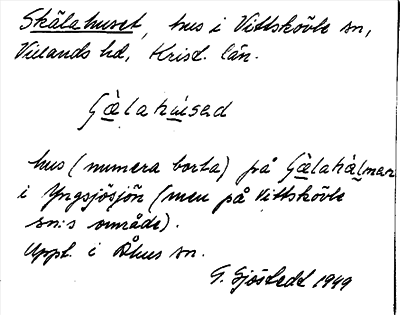 Skälahuset, hus i Vittskövle sn,
Villands hd, Krist. län.
Gälahused
hus (numera borta) på Gälahälmen
i Yngsjösjön (men på Vittskövle
sn:s område).
Uppt. i Åhus sn.
G. Sjöstedt 1949